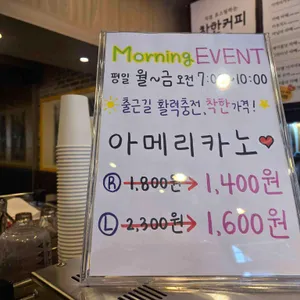 착한커피
Morning EVENT
평일 월~금 오전 7:00~10:00
출근길 활력충전, 착한가격!
아메리카노
R 1,800원→1,400원
L 2,300원→1,600원